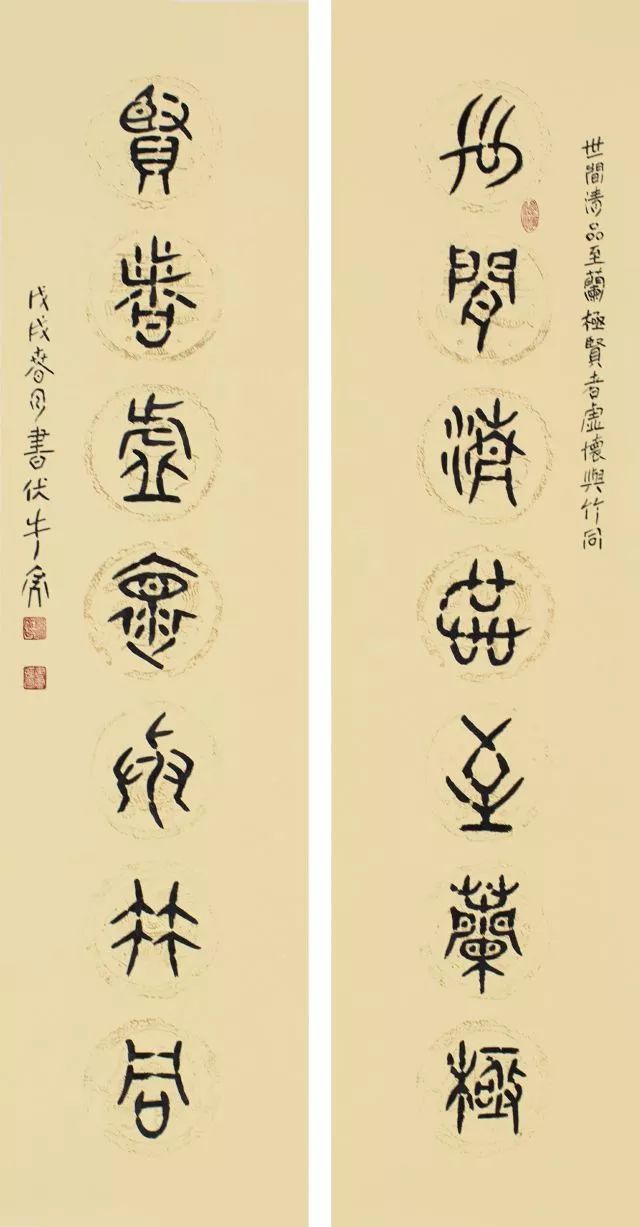 世間清品至蘭極賢者虛懷與竹同
世間清品至蘭極
賢者虛懷與竹同
戊戌春月書伏牛